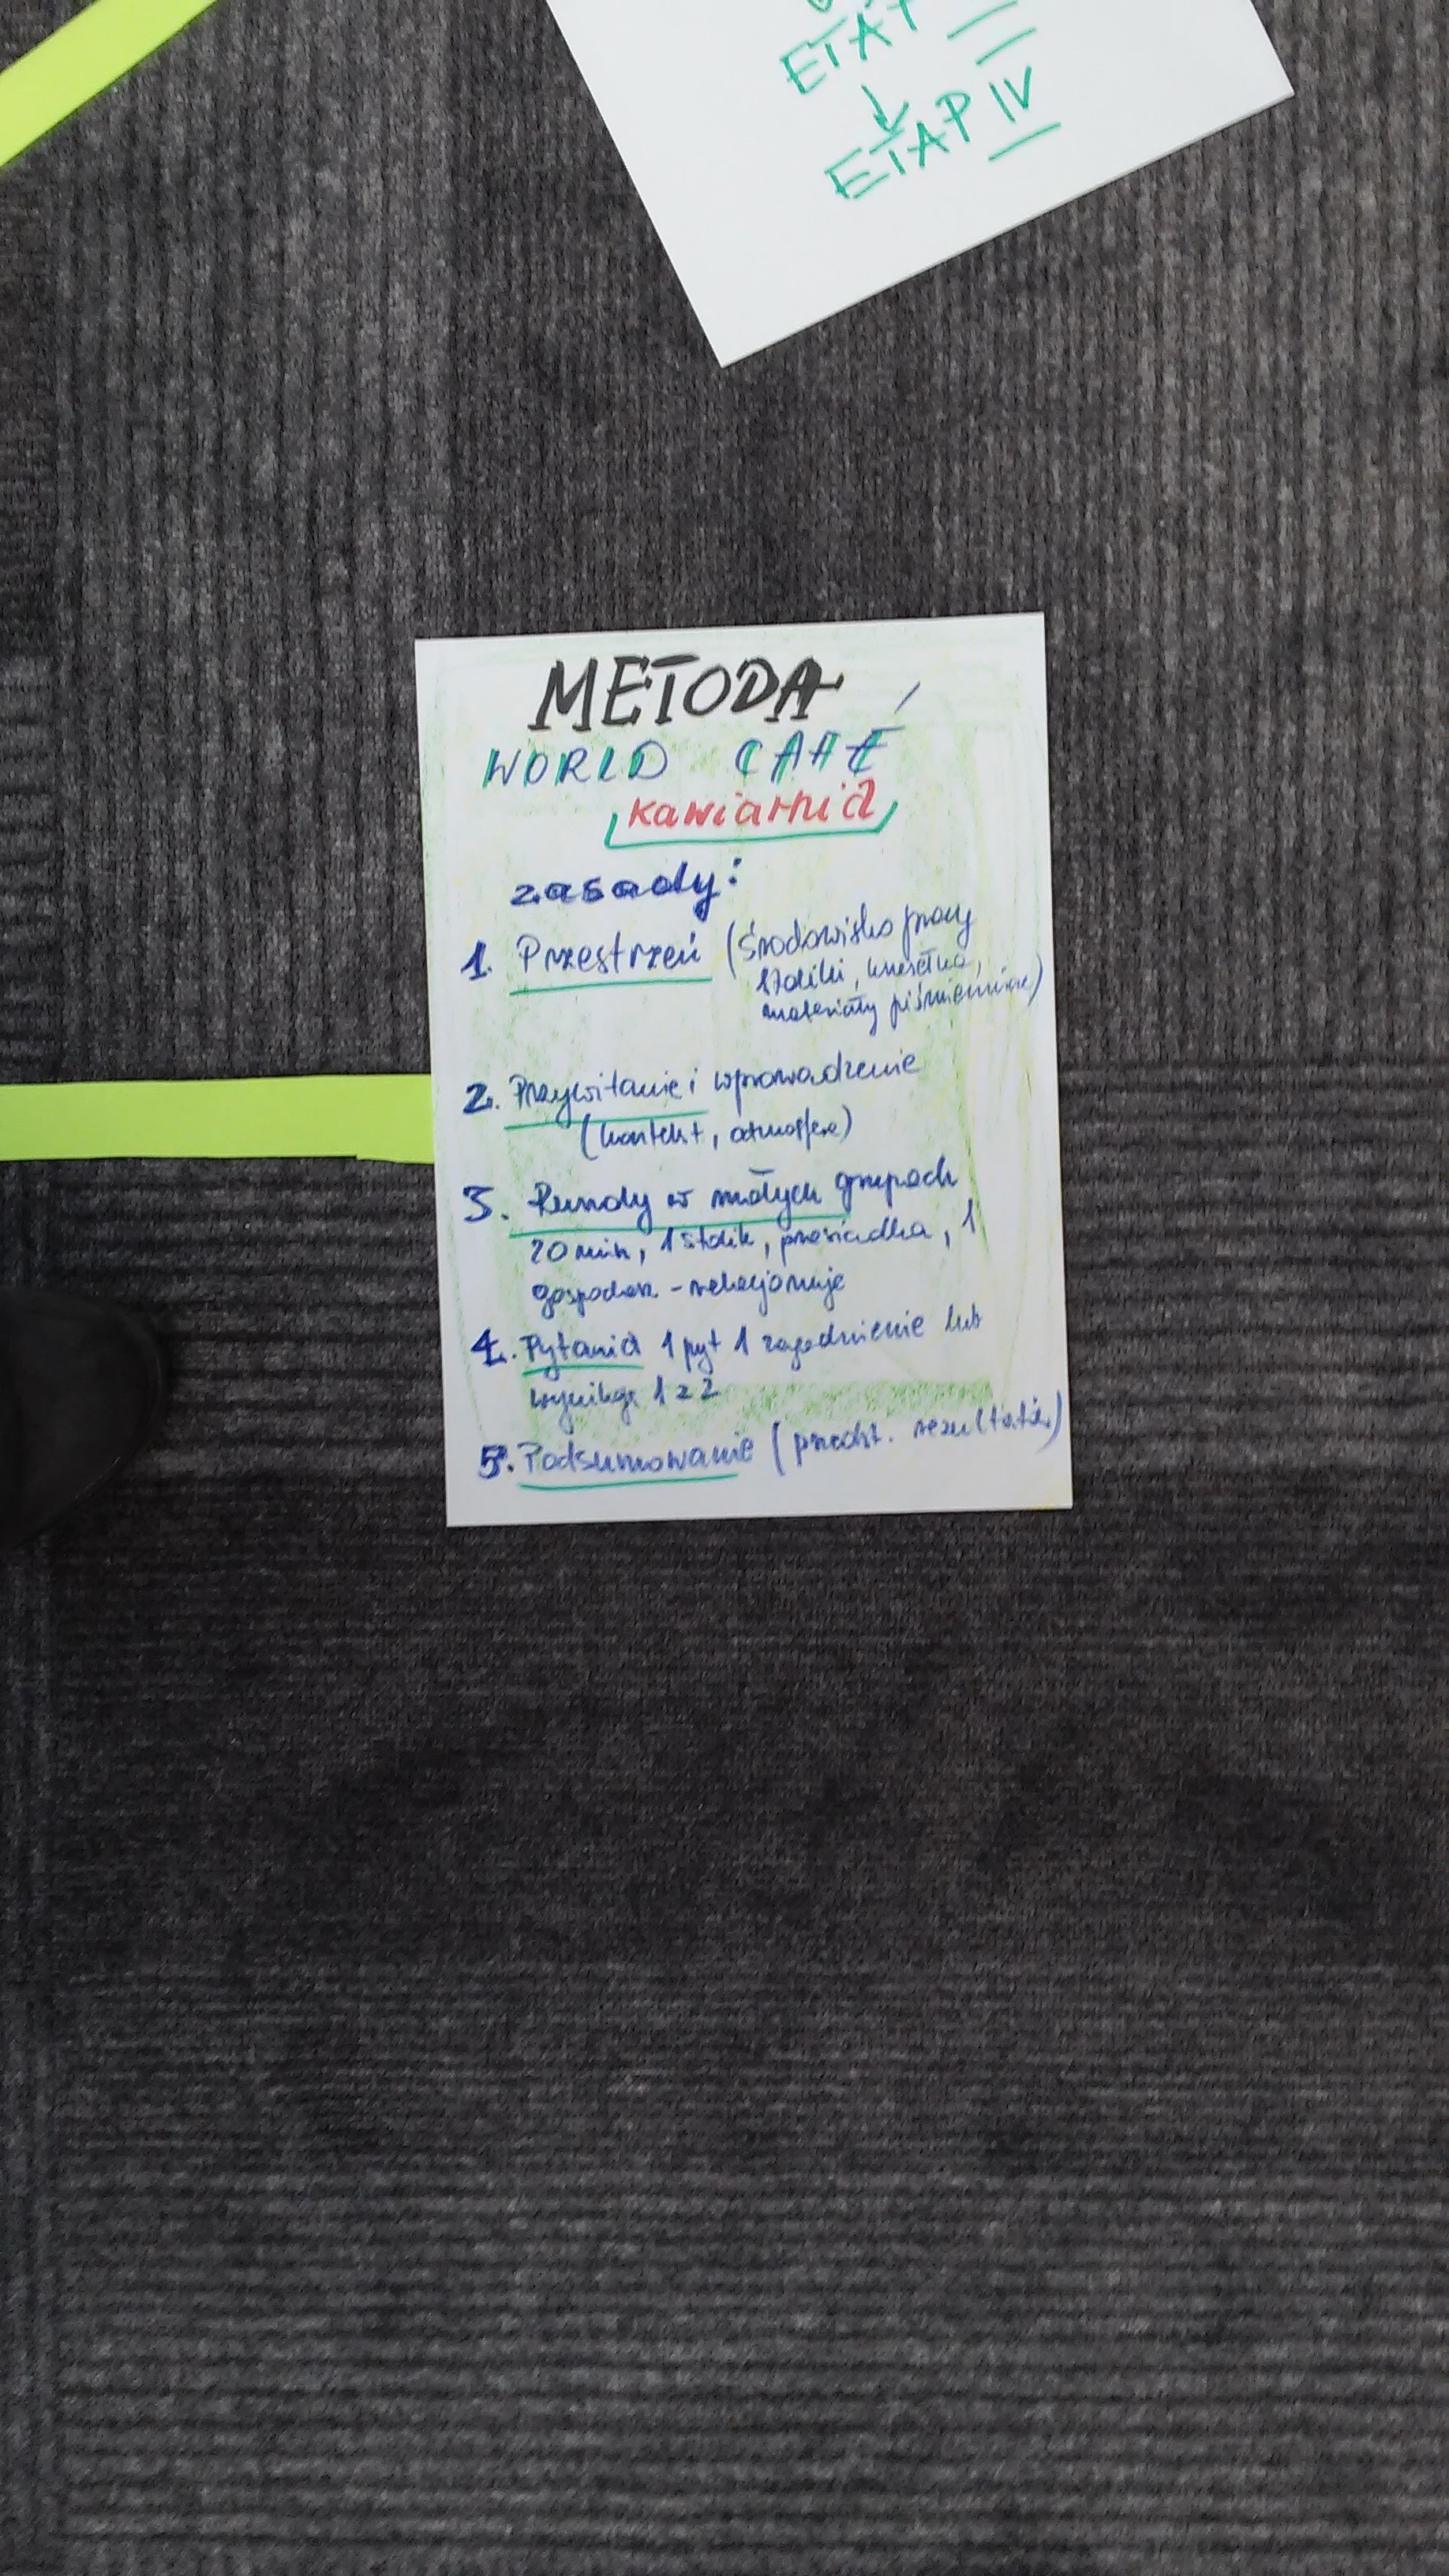 ETAP
ETAP IV
METODA
WORLD CAFÉ
kawiarnia
zasady:
1. Przestrzeń (środowisko pracy
stoliki, krzesełka,
materiały piśmiennicze)
2. Przywitanie i wprowadzenie
(kontekst, atmosfera)
3. Rundy w małych grupach
20 min, 1 stolik, przesiadka, 1
gospodarz - relacjonuje
4. Pytania 1 pyt 1 zagadnienie lub
wynikają 1 z 2
5. Podsumowanie (przedst. rezultatów)